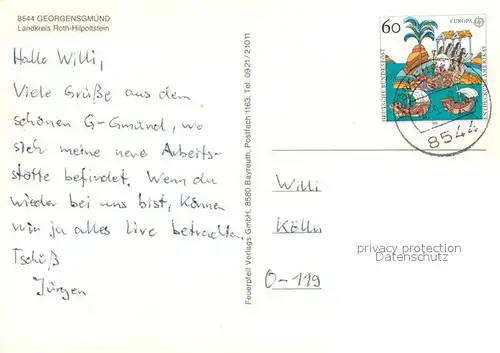 8544 GEORGENSGMÜND
Landkreis Roth-Hilpoltstein
Hallo Willi,
Viele Grüße aus dem
schönen G-Gmünd, wo
sich meine neue Arbeits-
stätte befindet. Wenn du
wieder bei uns bist, können
wir ja alles Live betrachten.
Tschüß
Jürgen
Feuerpfeil Verlags GmbH, 8580 Bayreuth, Postfach 1163, Tel. 0921/21011
60
EUROPA
DEUTSCHE BUNDESPOST
ENTDECKUNG AMERIKAS
8544
Willi
Kölln
O-119
privacy protection
Datenschutz